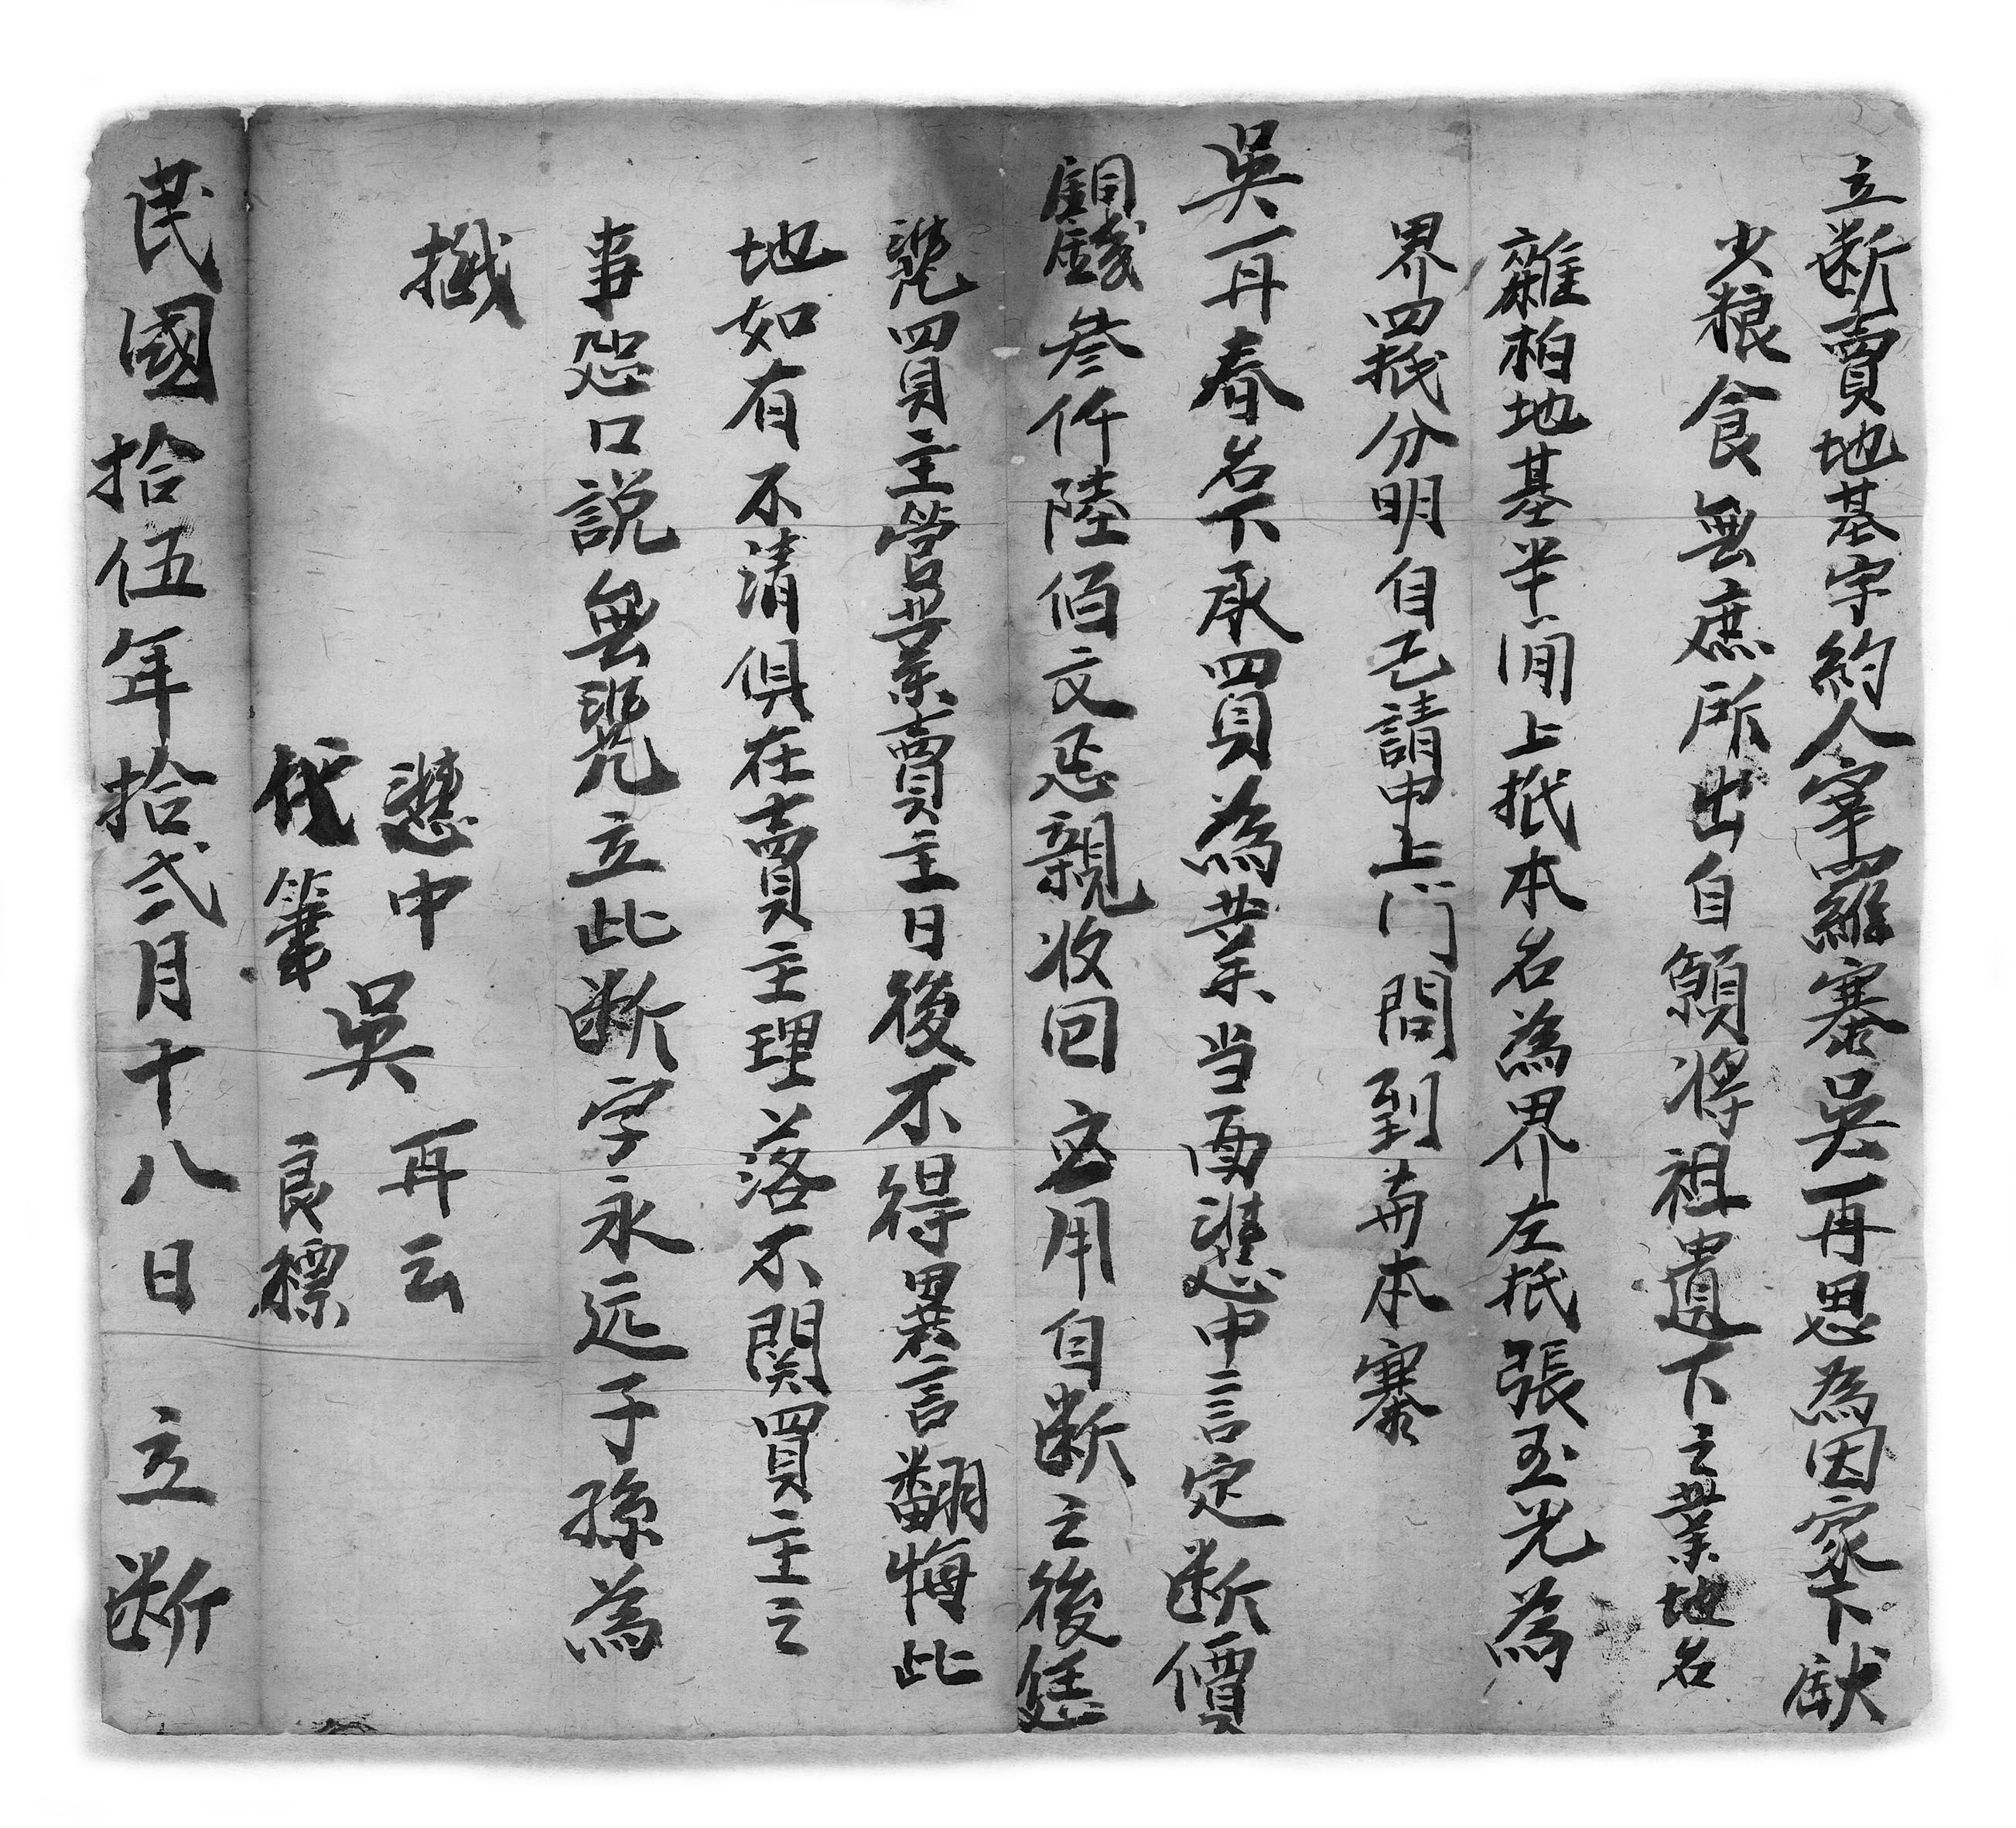 立断賣地基字約人宰羅寨吳再思為因家下缺
少粮食無庶所出自願將祖遺下之業地名
雜柏地基半間上抵本名為界左抵張玉光為
界四抵分明自己請中上門問到苗本寨
吳再春名下承買為業当面憑中言定断價
銅錢叁仟陸佰文足親收回應用自断之後恁
凴買主營業賣主日後不得異言翻悔此
地如有不清俱在賣主理落不関買主之
事恐口説無凴立此断字永远子孫為
擑
憑中 吳再云
代筆 吳良標
民國拾伍年拾弍月十八日 立断